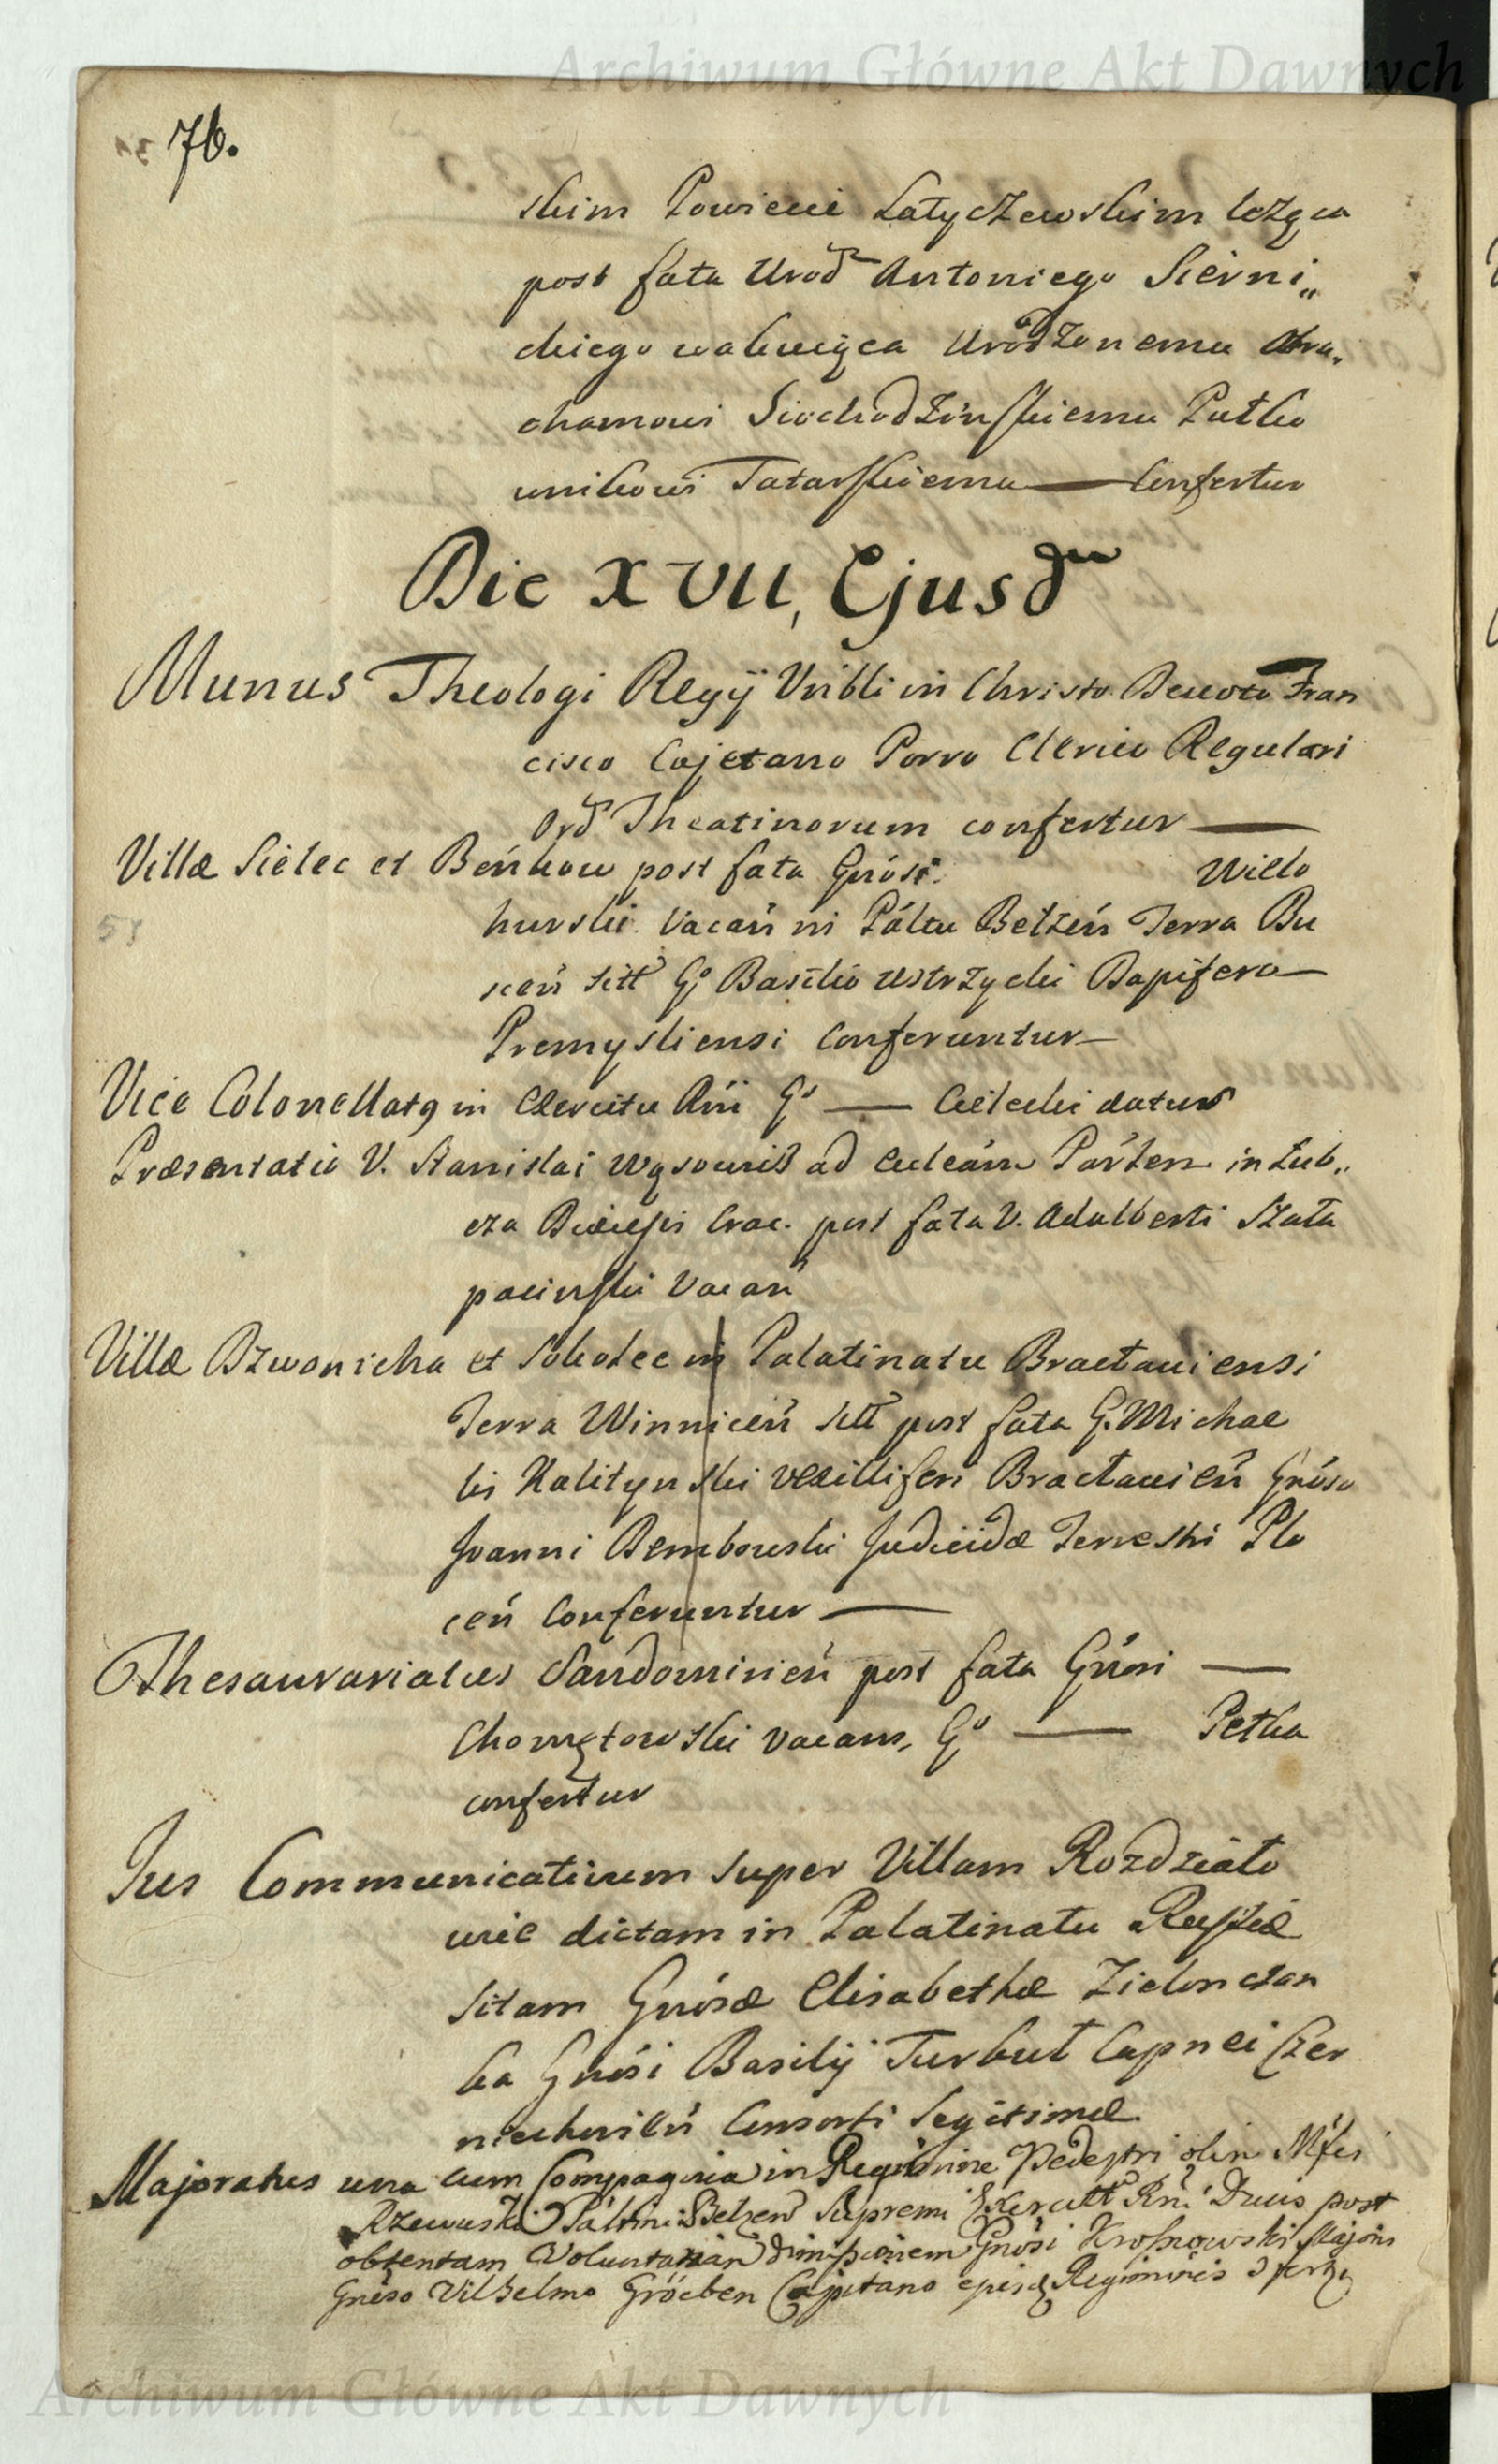 Archiwum Główne Akt Dawnych
76.
skim Powiecie Latyczewskim leżąca
post fata Urod Antoniego Sierni„
ckiego wakuiąca Urodzonemu Abra„
chamowi Siechodzińskiemu Pułko
wnikowi Tatarskiemu — Confertur
Die XVII, Ejusdm
Munus Theologi Regij Vnbli in Christo Devoto Fran
cisco Cajetano Porro Clerico Regulari
Ord Theatinorum confertur —
Villæ Sielec et Bońkow post fata Gnósi. Wielo
hurski Vacań in Páltu Bełzeń Terra Bu
sceń sitt Go Basilio Ustrzycki Dapifero —
Premysliensi Conferuntur —
Vice Colonellatq in Exercitu Rni Go — datur
Præsentatio V. Stanislai Wąsowicz ad Ecleám Párlem in Lub„
cza Diæcesis Crac. post fata V. Adalberti Szata
pacinski Vacan
Villæ Dzwonicha et Sokolec in Palatinatu Bracłaviensi
Terra Winniceń sitt post fata G. Michae
lis Kalitynski Vexilliferi Bracłavień Gnóso
Joanni Dembowski Judicidæ Terrestri Plo
ceń Conferuntur —
Thesaurariatus Sandomirień post fata Gnósi —
Chomętowski vacans, Go — Petka
confertur
Jus Communicativum super Villam Rozdziało
wice dictam in Palatinatu Russiæ
sitam Gnósæ Elisabethæ Zielonczan
ka Gnósi Basilij Turkuł Capnei Czer
niechovień Consorti Legitimæ
Majoratus una cum Compagnia in Regimine Pedestri olim Mfci
Rzewuski Páltini Belzen Supremi Exercitt Rni Ducis post
obtentam Voluntariam dimissionem Gnósi Krosnowski Majoris
Gnóso Vilhelmo Gröeben Capitano ejusdq Regiminis
Archiwum Główne Akt Dawnych